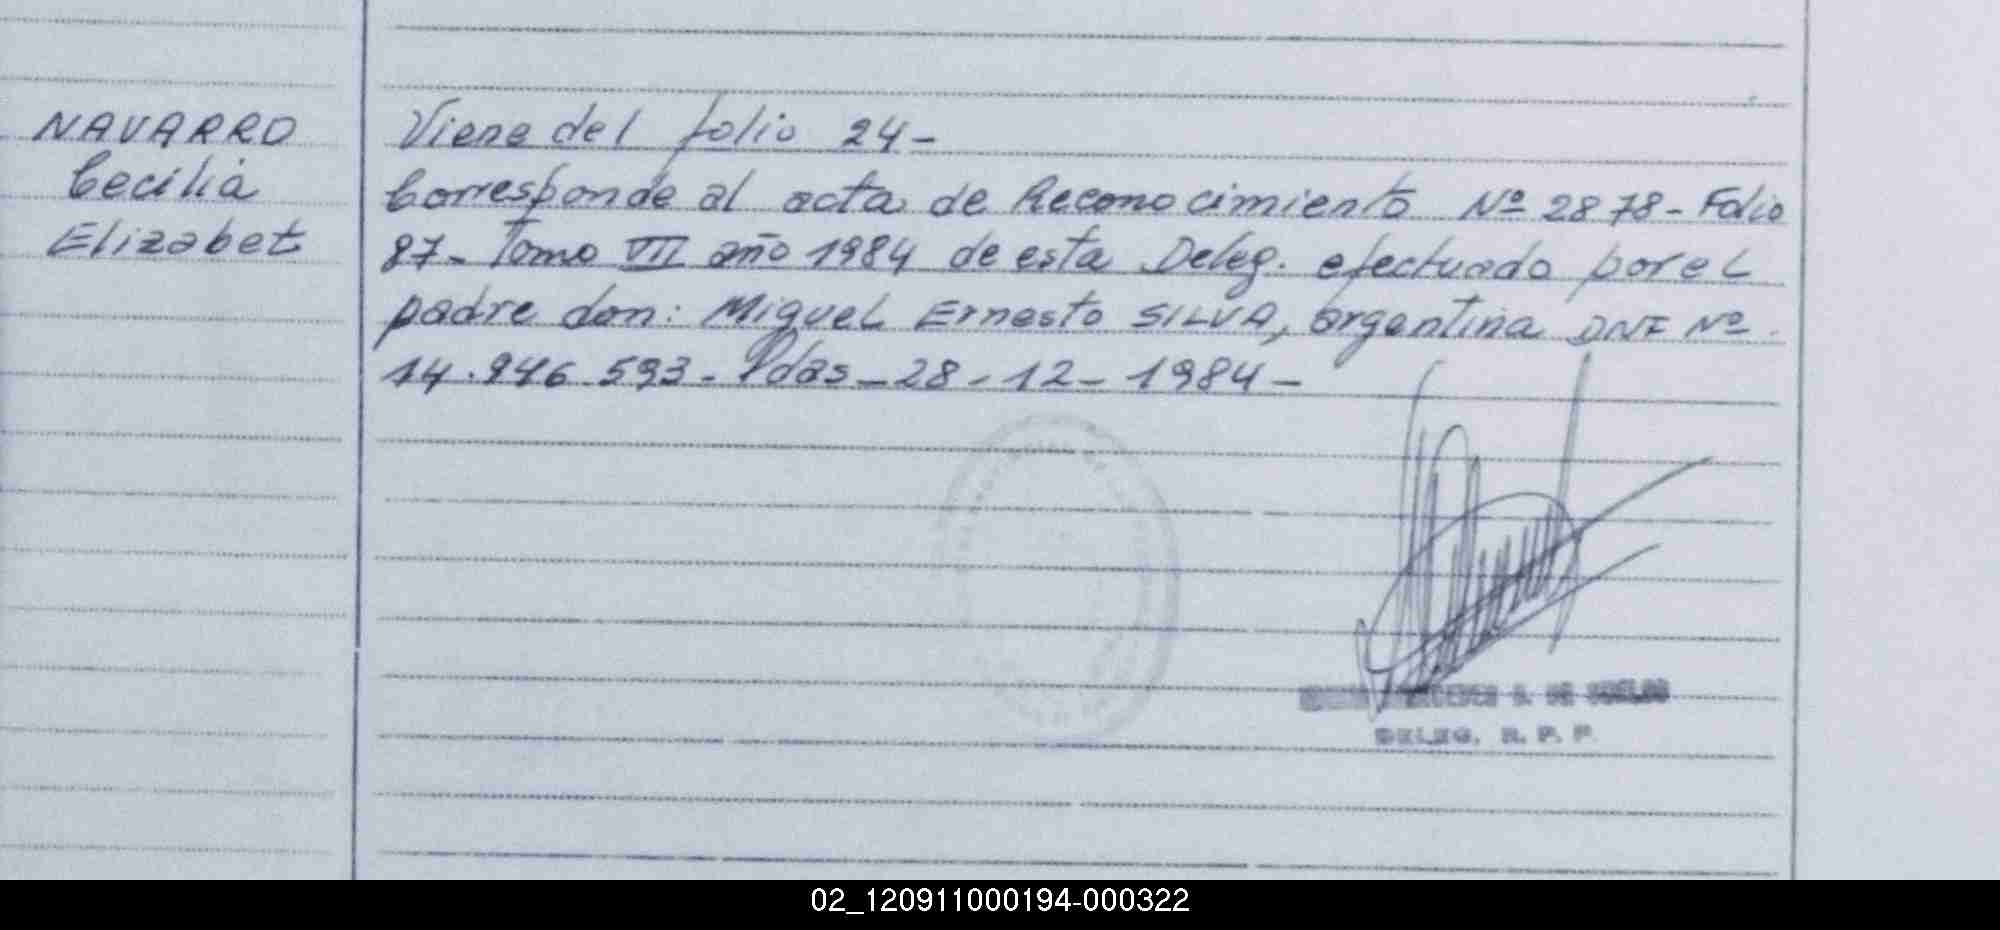 NAVARRO
Cecilia
Elizabet
Viene del folio 24-
Corresponde al acta de Reconocimiento Nº 2878- Folio
87- Tomo VII año 1984 de esta Deleg. efectuado por el
padre don: Miguel Ernesto SILVA, argentina DNI Nº
14.946.593- Pdas- 28-12-1984-
DELEG. R. P. P.
02_120911000194-000322